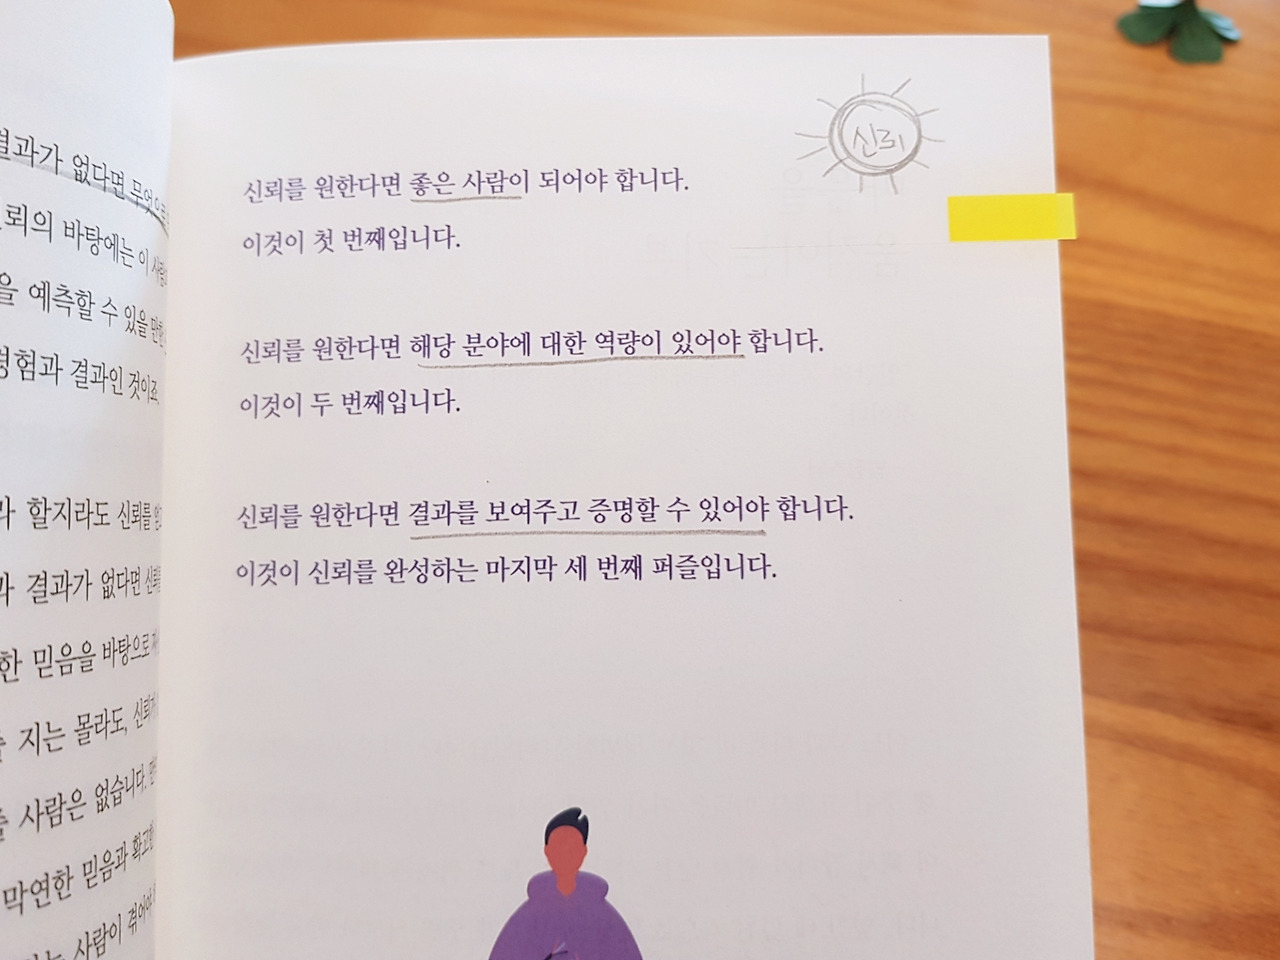 결과가 없다면 무엇으로
뢰의 바탕에는 이 사람
을 예측할 수 있을 만한
경험과 결과인 것이죠.
라 할지라도 신뢰를
과 결과가 없다면 신뢰를
한 믿음을 바탕으로
지는 몰라도, 신뢰가
사람은 없습니다.
막연한 믿음과 확고한
사람이 겪어야
신뢰
신뢰를 원한다면 좋은 사람이 되어야 합니다.
이것이 첫 번째입니다.
신뢰를 원한다면 해당 분야에 대한 역량이 있어야 합니다.
이것이 두 번째입니다.
신뢰를 원한다면 결과를 보여주고 증명할 수 있어야 합니다.
이것이 신뢰를 완성하는 마지막 세 번째 퍼즐입니다.